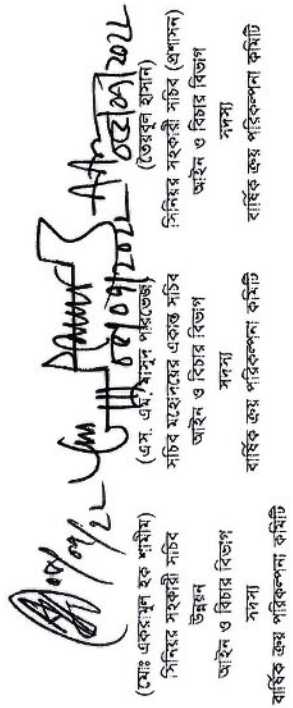 ০৪/০৭/২২
(মোঃ একরামুল হক শামীম)
সিনিয়র সহকারী সচিব
উন্নয়ন
আইন ও বিচার বিভাগ
সদস্য
বার্ষিক ক্রয় পরিকল্পনা কমিটি
০৪/০৭/২০২২
(এস. এম. মাসুদ পারভেজ)
সচিব মহোদয়ের একান্ত সচিব
আইন ও বিচার বিভাগ
সদস্য
বার্ষিক ক্রয় পরিকল্পনা কমিটি
(তৈয়বুল হাসান)
সিনিয়র সহকারী সচিব (প্রশাসন)
আইন ও বিচার বিভাগ
সদস্য
বার্ষিক ক্রয় পরিকল্পনা কমিটি